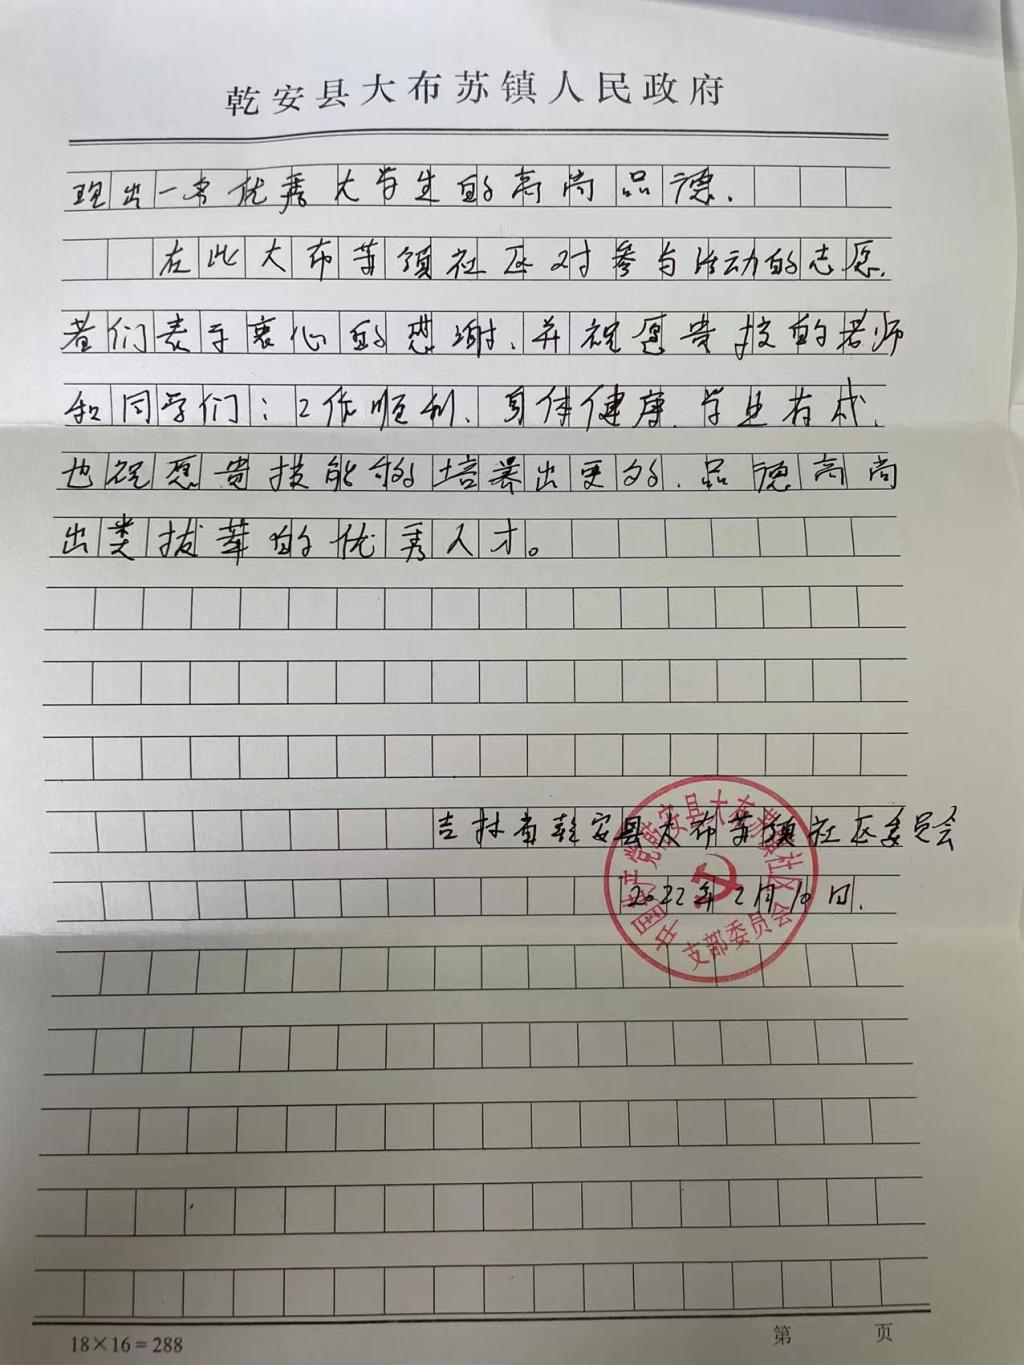 乾安县大布苏镇人民政府
现出一名优秀大学生的高尚品德.
在此大布苏镇社区对参与活动的志愿.
者们表于衷心的感谢.并祝愿贵校的老师
和同学们:工作顺利.身体健康.学业有成.
也祝愿贵校能够的培养出更多的.品德高尚
出类拔萃的优秀人才。
吉林省乾安县大布苏镇社区委员会
2022年2月10日.
中国共产党乾安县大布苏镇社区
支部委员会
18×16=288
第 页